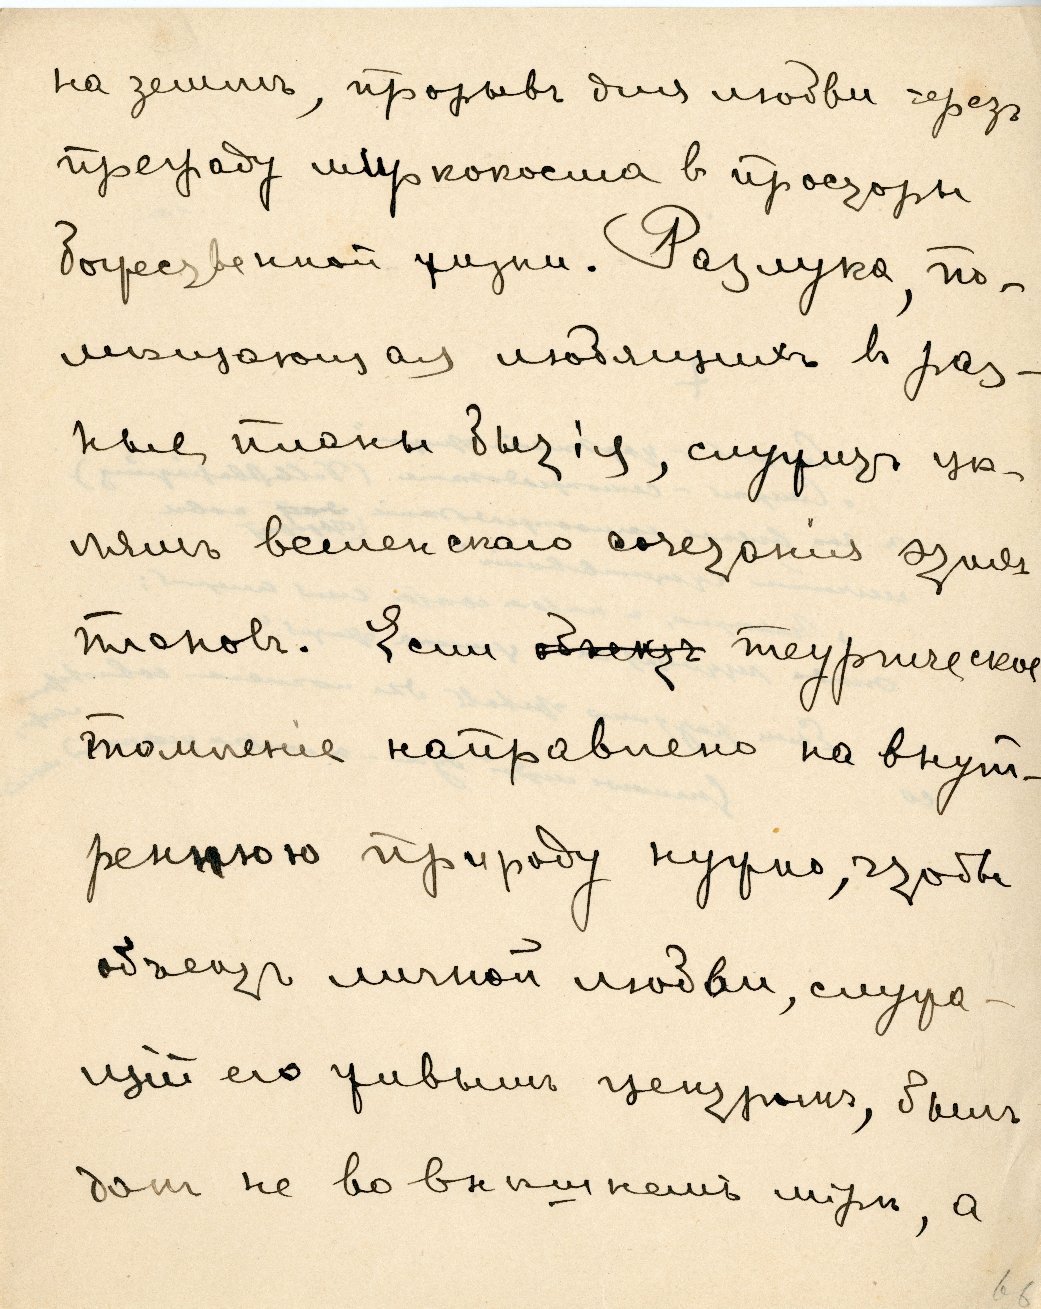 на земль, прорывъ для любви черезъ
преграду микрокосма в просторы
божественной жизни. Разлука, по-
мѣщающая любящихъ в раз-
ные планы бытія, служитъ цѣ-
лямъ вселенскаго сочетанія этихъ
плановъ. Если объектъ теургическое
томленіе направлено на внут-
реннюю природу нужно, чтобы
объектъ личной любви, служа-
щій его живымъ центромъ, былъ
данъ не во внѣшнемъ мірѣ, а
66